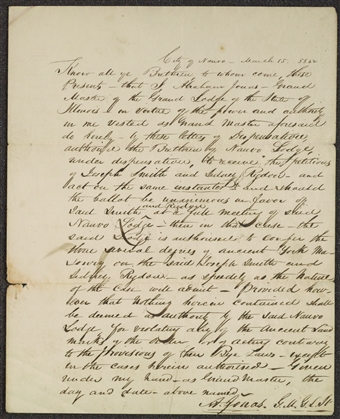 City of Nauvo - March 15. 5842
Know all ye Brethren to whom come these
Presents - that I, Abraham Jonas - Grand
Master of the Grand Lodge of the State of
Illinois - in virtue of the power and authority
in me vested as Grand Master aforesaid
do hereby - by these letters of Dispensation
authorise the Brethren of Nauvo Lodge,
under dispensation, to receive the petitions
of Joseph Smith and Sidney Rigdon - and
act on the same instanter - and should
the ballot be unanimous in favor of
Said Smith and Rigdon, at a full meeting of said
Nauvo Lodge - then in this case - the
said Lodge is authorised to confer the
three several degrees of ancient York Ma-
sonry on the said Joseph Smith and
Sidney Rigdon - as speedily as the nature
of the Case will admit - Provided how-
ever that nothing herein contained shall
be deemed as authority to the said Nauvo
Lodge for violating any of the Ancient Land
marks of the order, or acting contrary
to the provisions of their Bye Laws - except
in the cases herein authorised - Given
under my hand - as Grand Master, the
day and date above named
A. Jonas. G. M. G. L. Ill